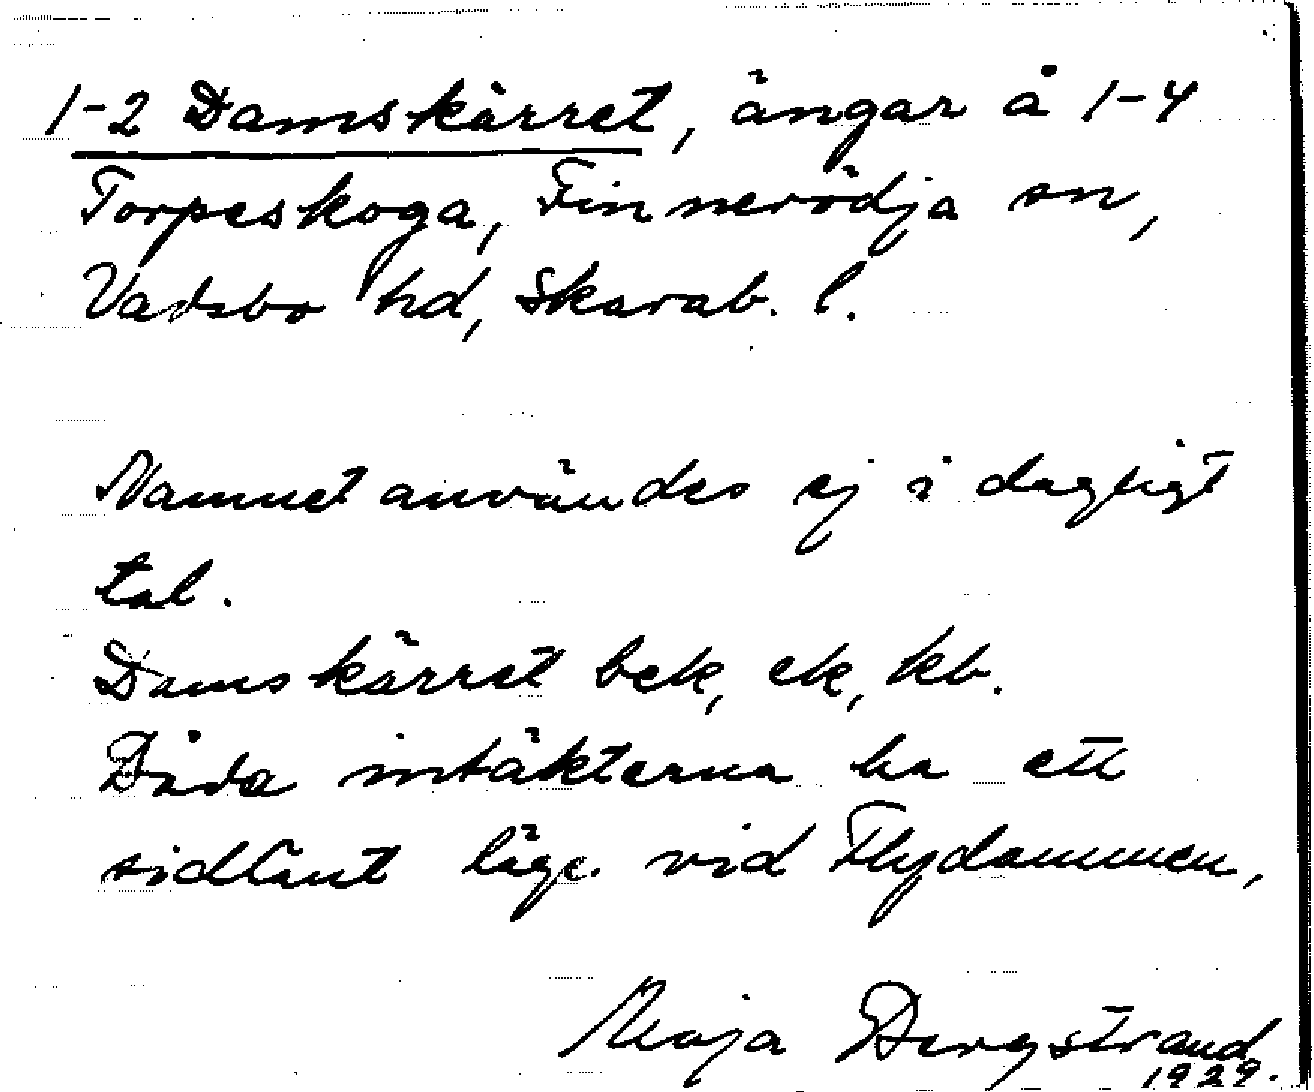 1-2 Damskärret, ängar å 1-4
Torpeskoga, Finnerödja sn,
Vadsbo hd, Skarab. l.
Namnet användes ej i dagligt
tal.
Damskärret bek, ek, kb.
Båda intäkterna ha ett
sidlänt läge vid Flydammen,
Maja Bergstrand
1929.